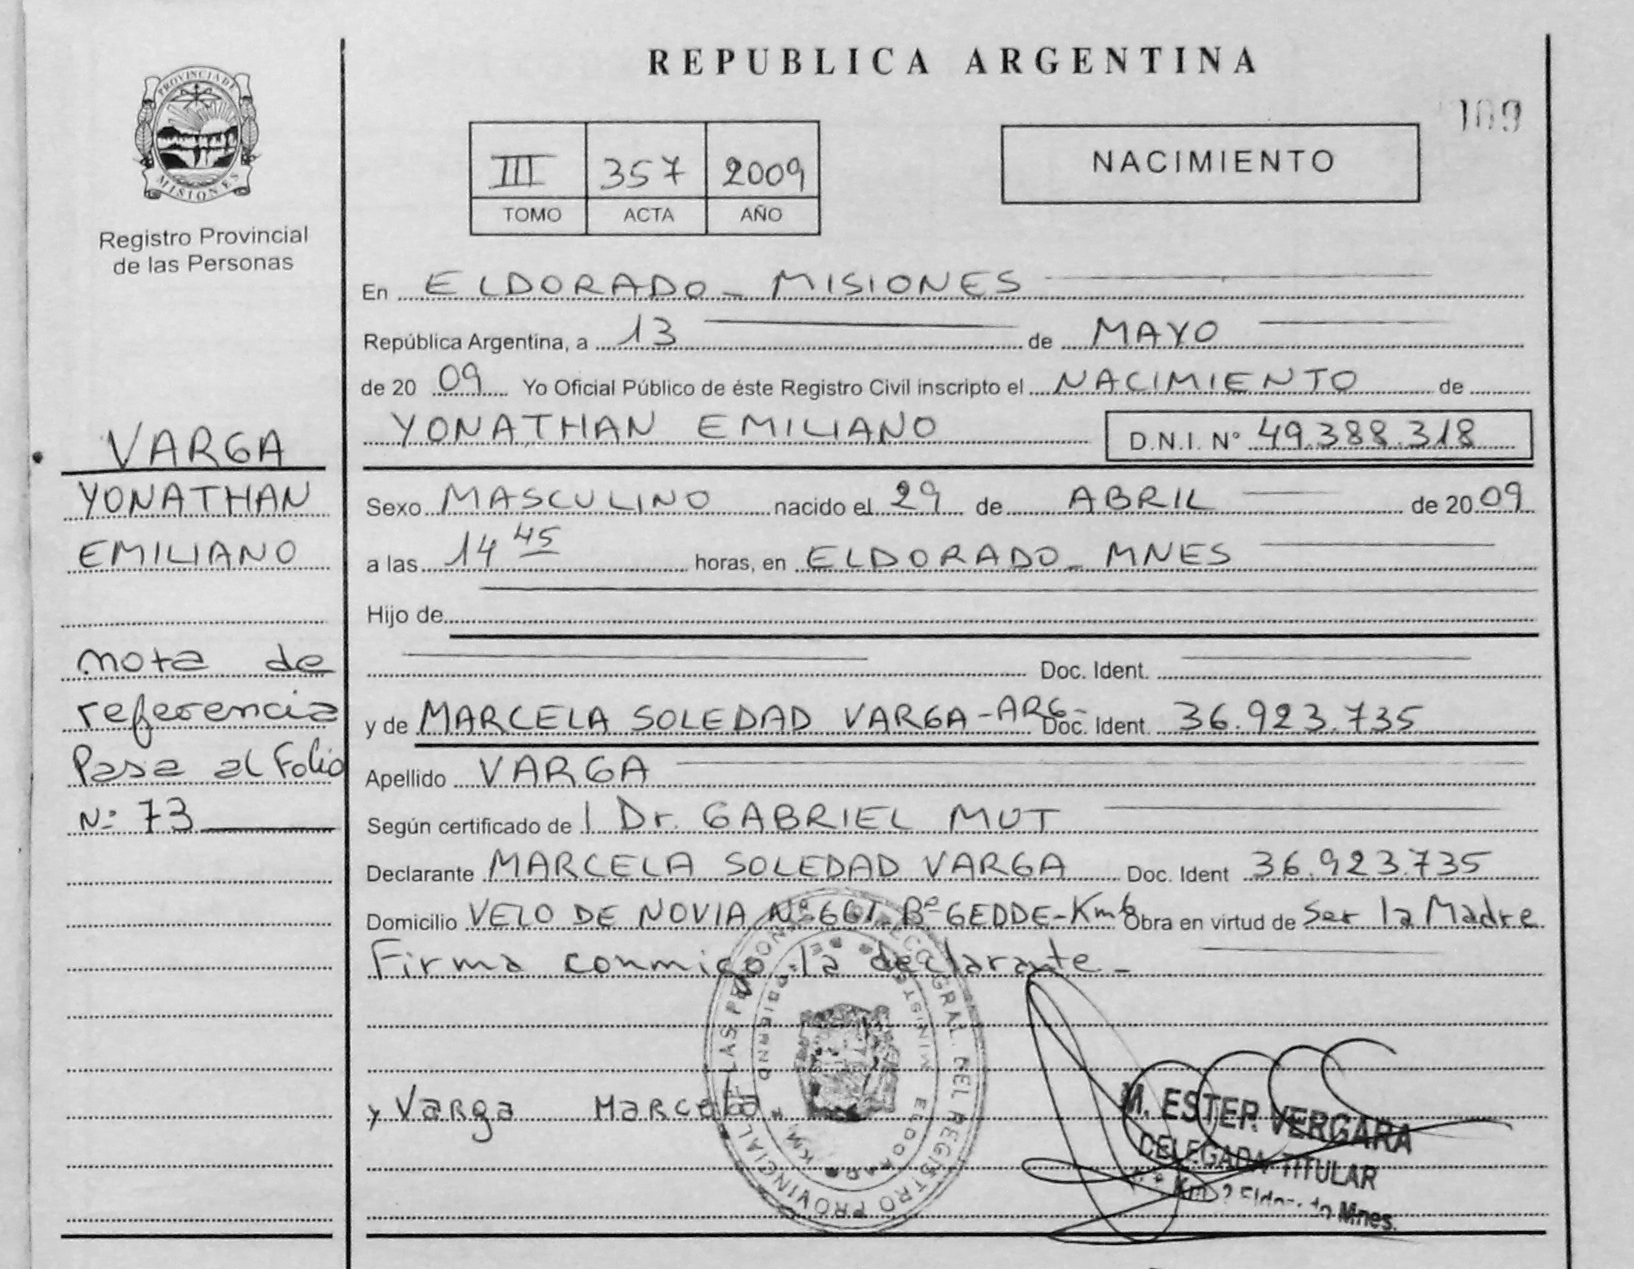 REPUBLICA ARGENTINA
109
PROVINCIA DE
MISIONES
Registro Provincial
de las Personas
III 357 2009
TOMO ACTA AÑO
NACIMIENTO
En ELDORADO - MISIONES
República Argentina, a 13 de MAYO
de 20 09 Yo Oficial Público de éste Registro Civil inscripto el NACIMIENTO de
YONATHAN EMILIANO D.N.I. N° 49.388.318
VARGA
YONATHAN
EMILIANO
nota de
referencia
Pasa al Folio
N° 73
Sexo MASCULINO nacido el 29 de ABRIL de 20 09
a las 14 45 horas, en ELDORADO - MNES
Hijo de
Doc. Ident.
y de MARCELA SOLEDAD VARGA - ARG - Doc. Ident. 36.923.735
Apellido VARGA
Según certificado de l Dr. GABRIEL MUT
Declarante MARCELA SOLEDAD VARGA Doc. Ident 36.923.735
Domicilio VELO DE NOVIA N° 661 B° GEDDE - Km 6 Obra en virtud de Ser la Madre
Firma conmigo la declarante -
y Varga Marcela
DEL REGISTRO PROVINCIAL DE LAS PERSONAS
ELDORADO
M. ESTER VERGARA
DELEGADA TITULAR
Km 2 Eldorado Mnes.